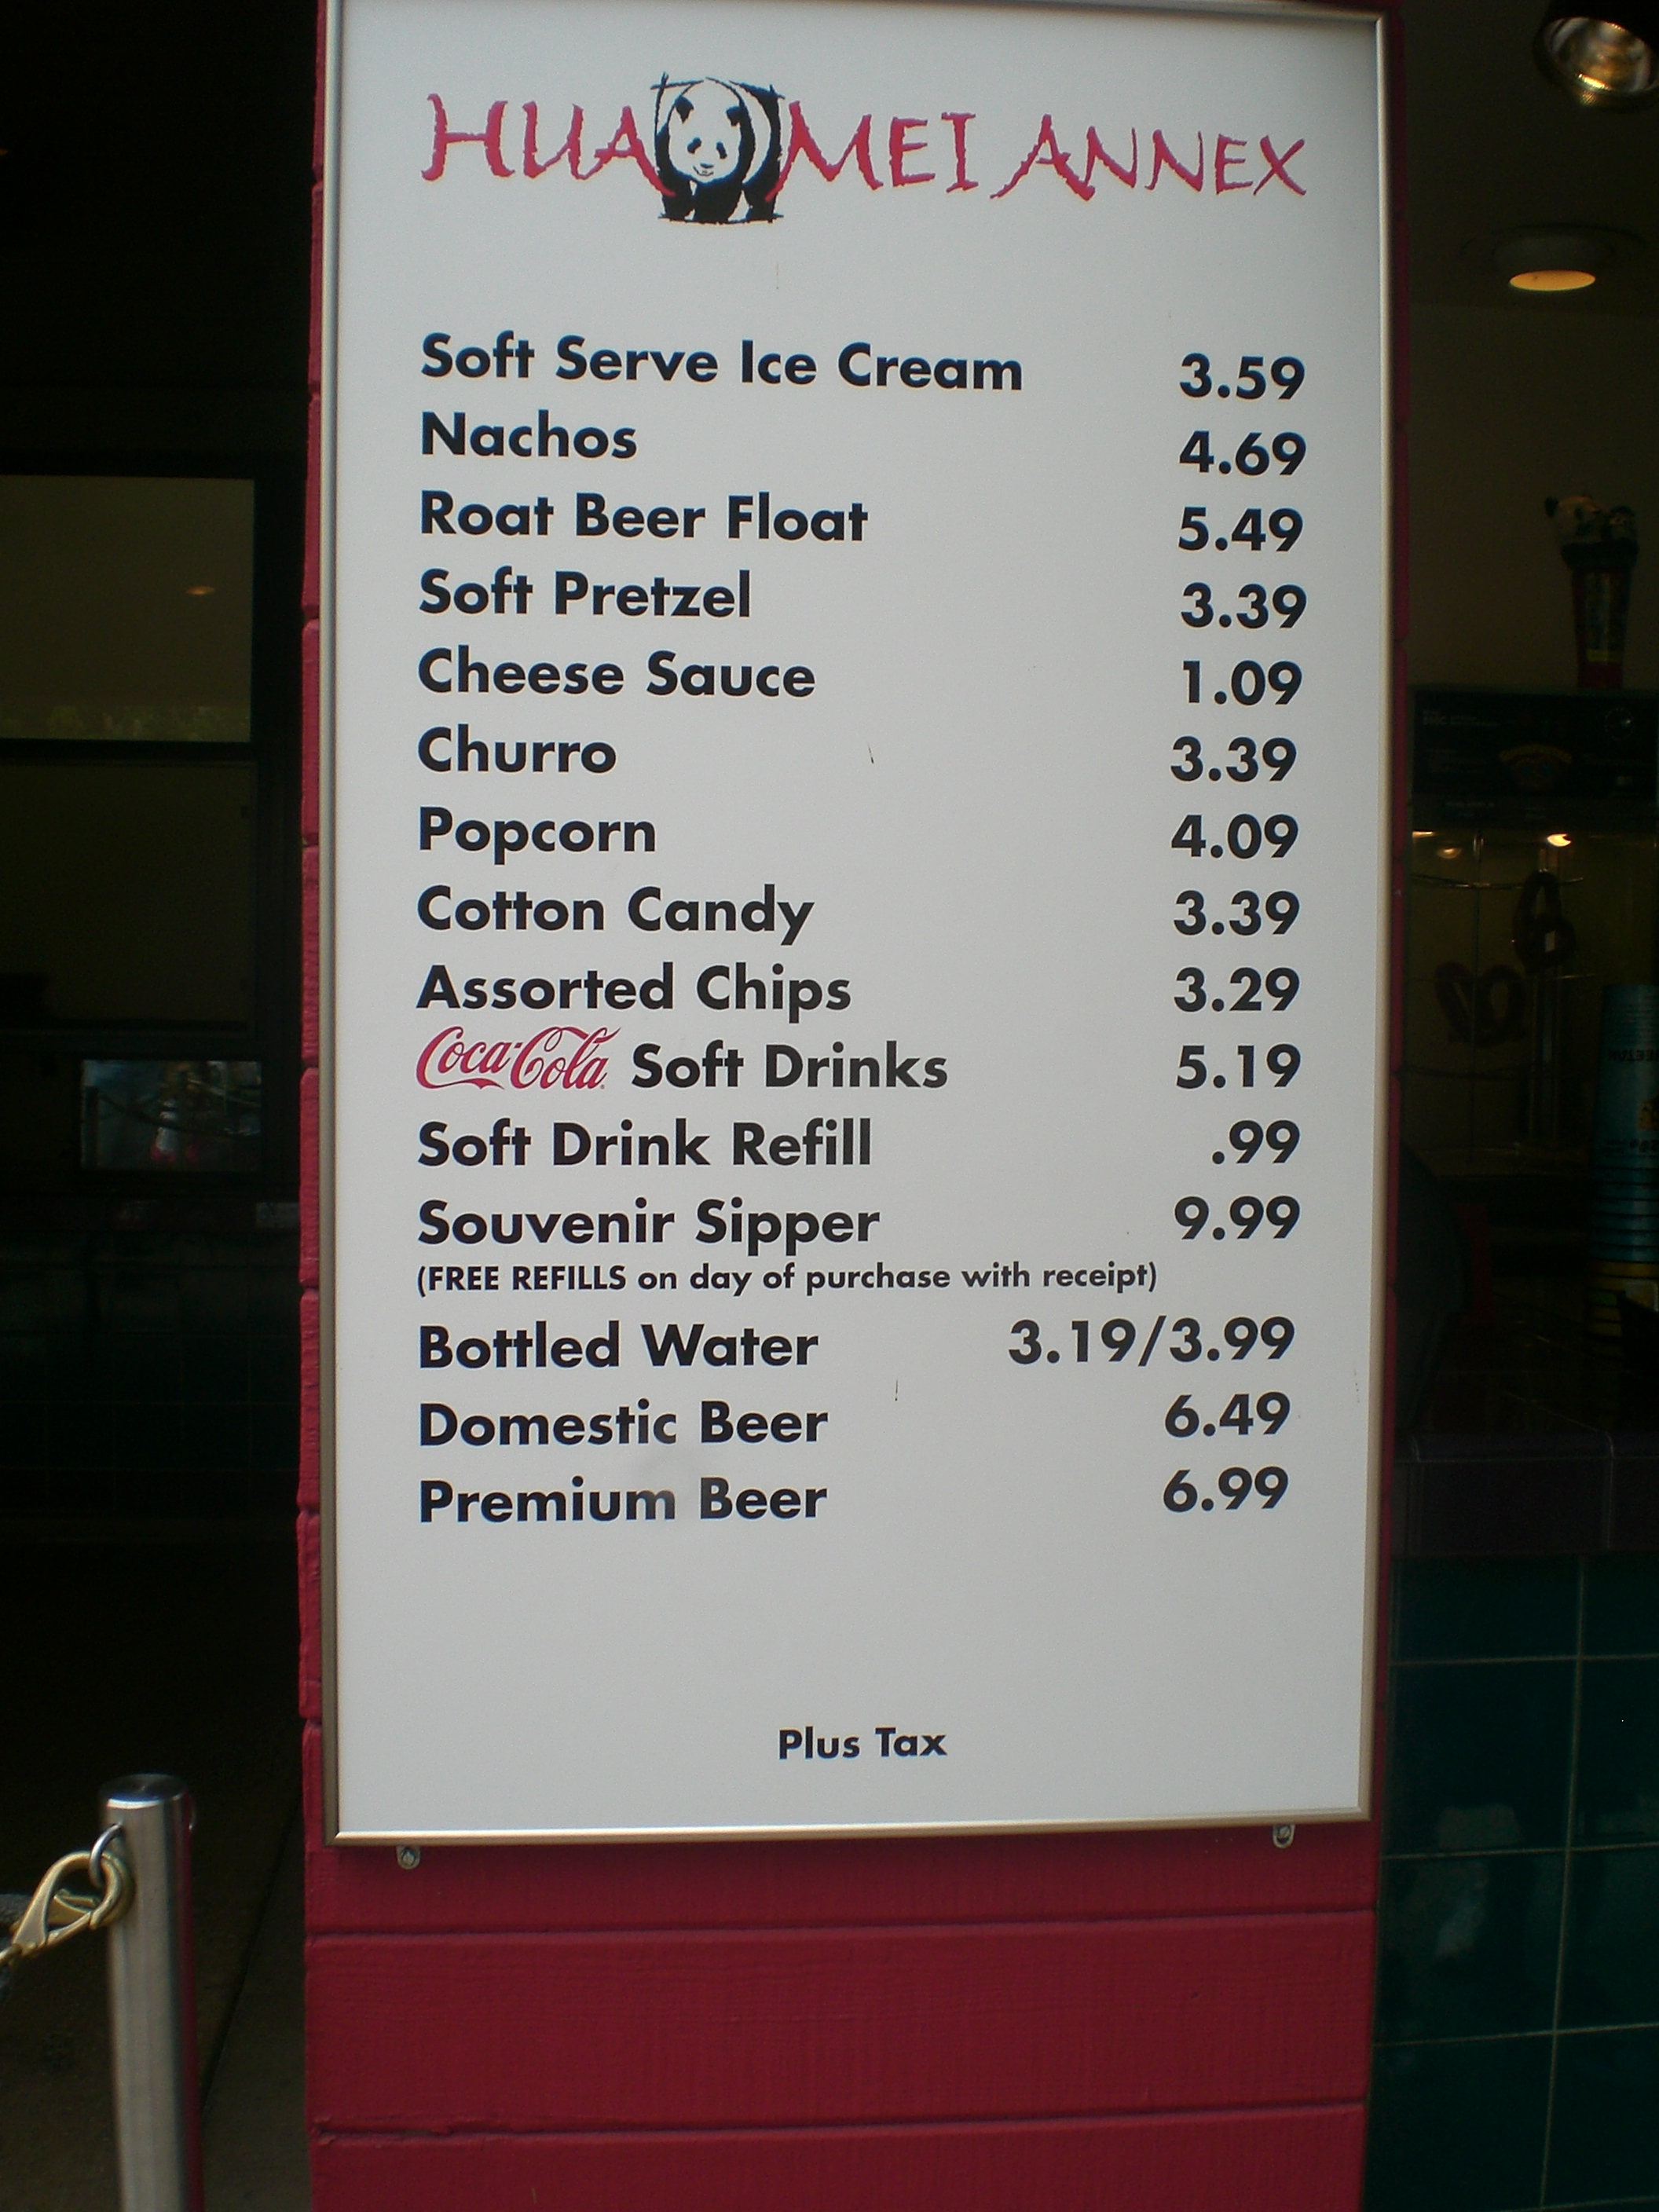 HUA MEI ANNEX
Soft Serve Ice Cream 3.59
Nachos 4.69
Roat Beer Float 5.49
Soft Pretzel 3.39
Cheese Sauce 1.09
Churro 3.39
Popcorn 4.09
Cotton Candy 3.39
Assorted Chips 3.29
Coca-Cola Soft Drinks 5.19
Soft Drink Refill .99
Souvenir Sipper 9.99
(FREE REFILLS on day of purchase with receipt)
Bottled Water 3.19/3.99
Domestic Beer 6.49
Premium Beer 6.99
Plus Tax